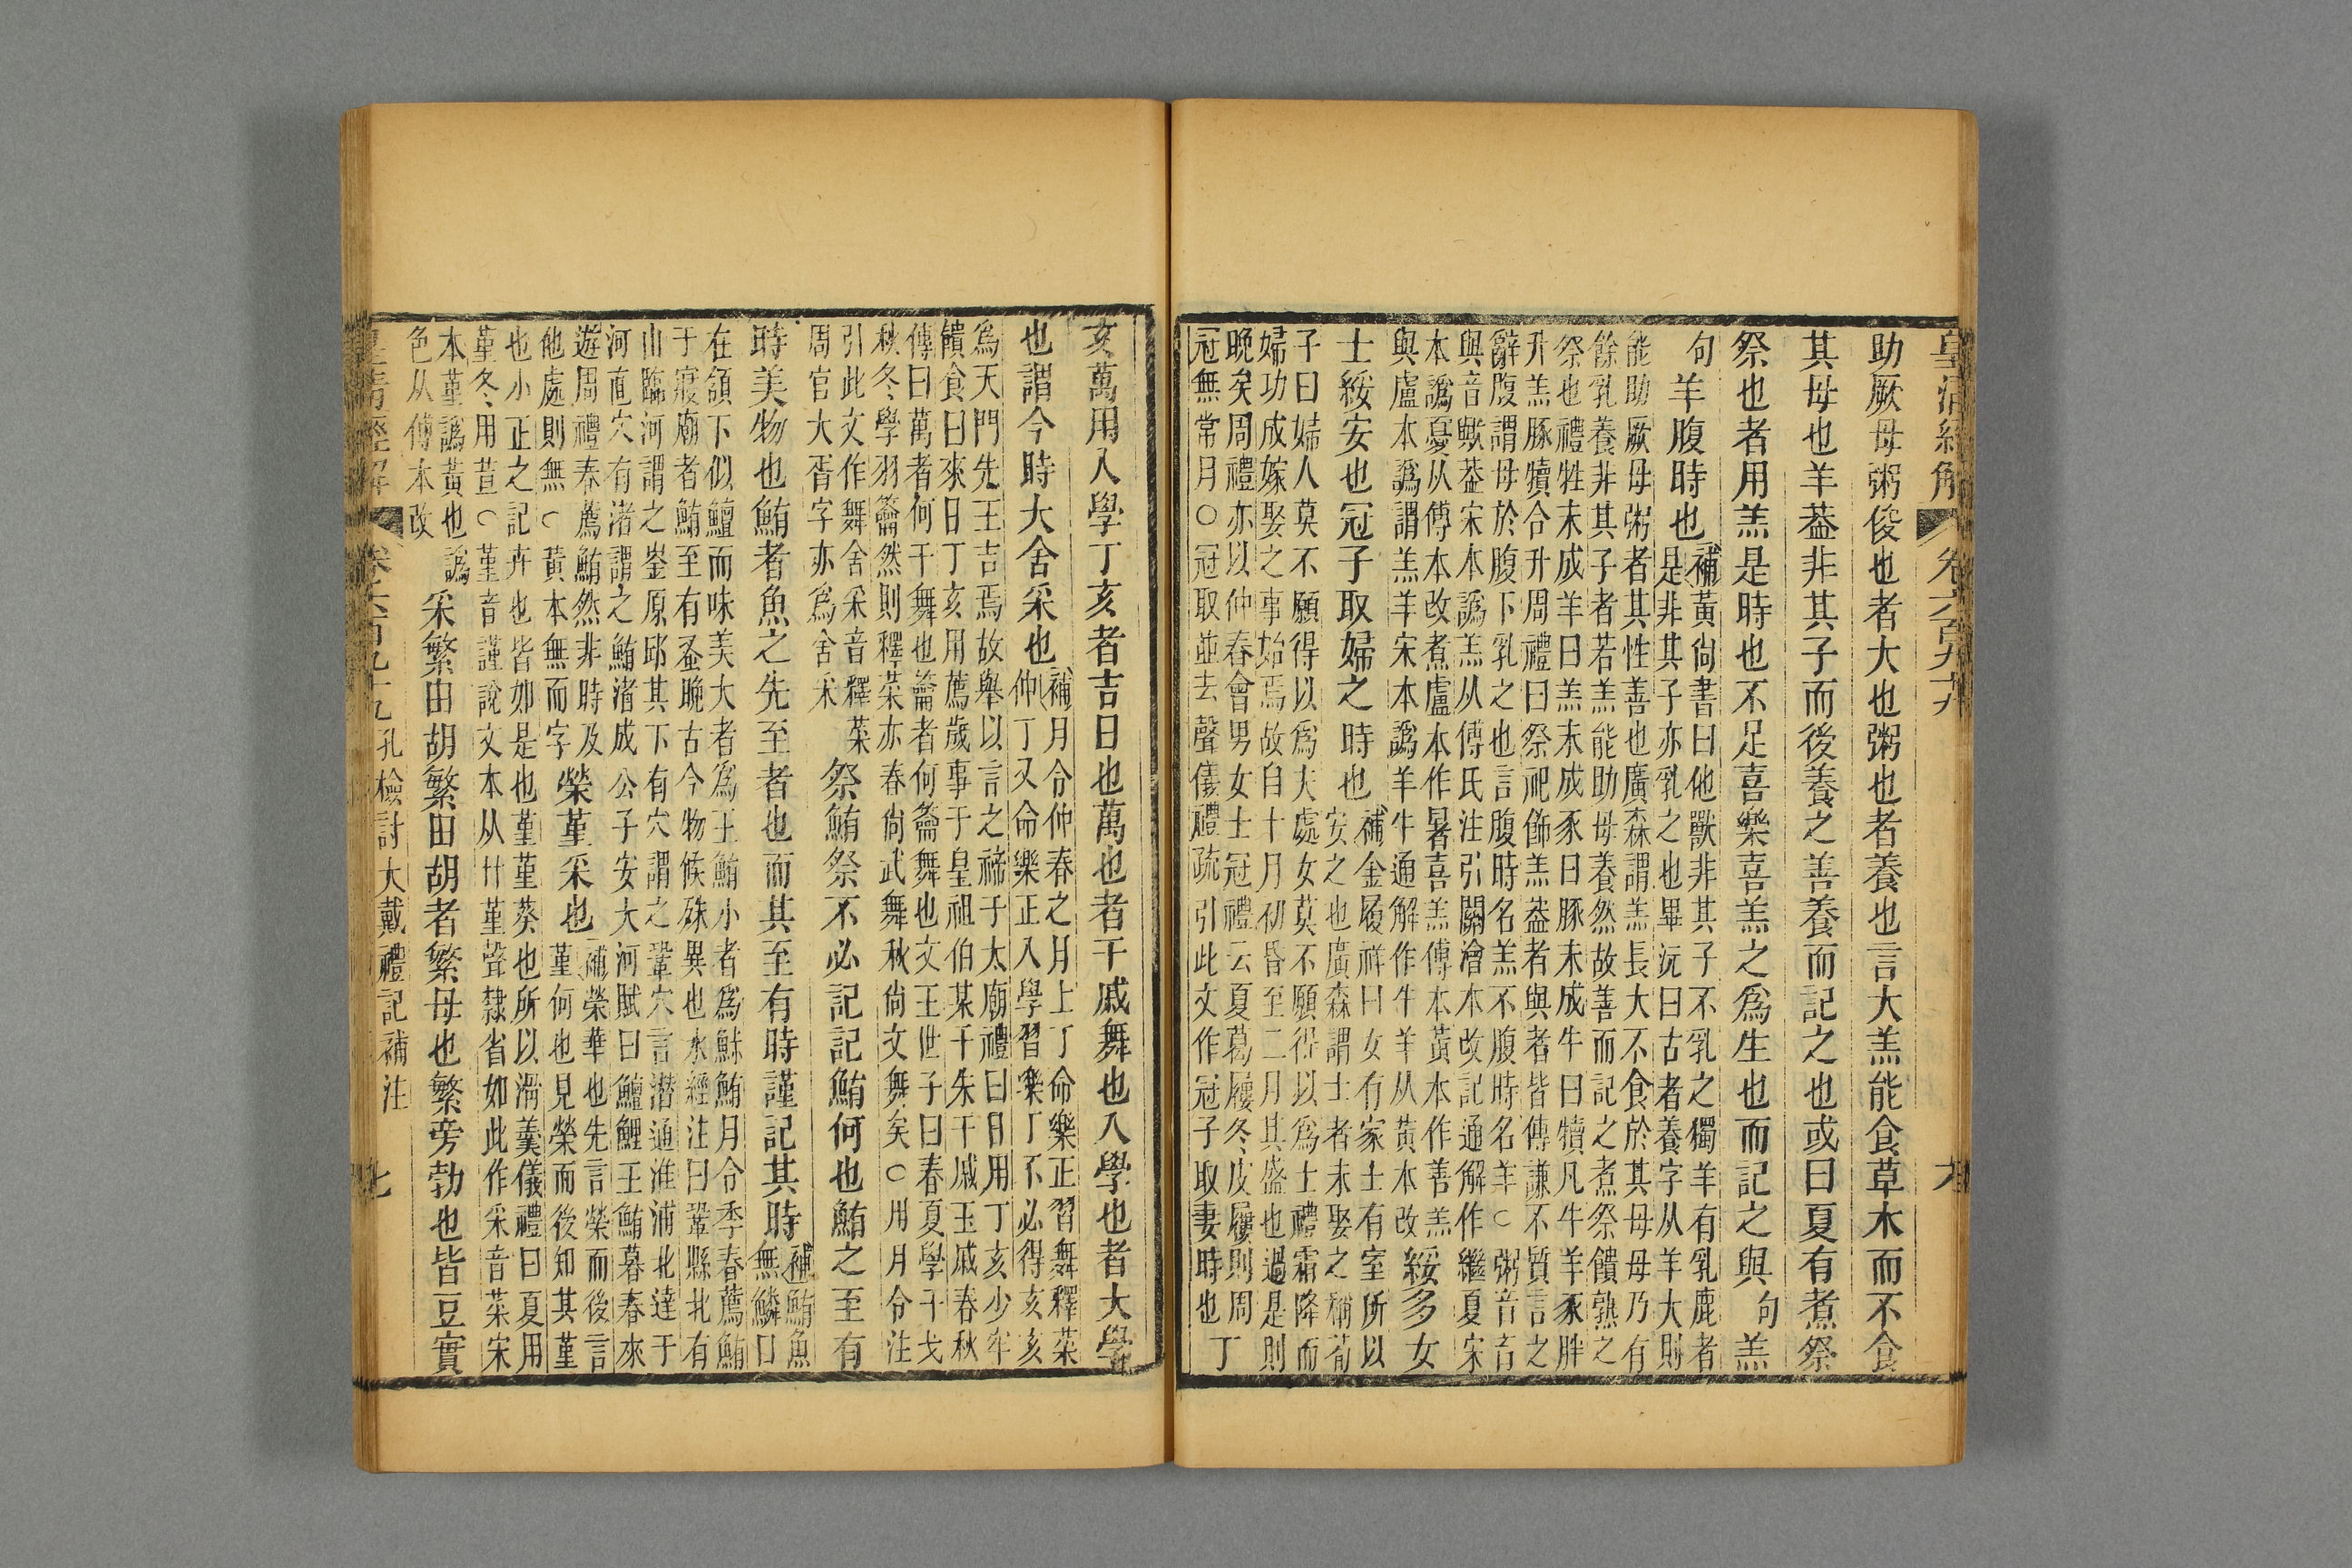 皇清經解 卷六百九十九 六
助厥母粥俊也者大也粥也者養也言大羔能食草木而不食
其母也羊葢非其子而後養之善養而記之也或曰夏有煮祭
祭也者用羔是時也不足喜樂喜羔之爲生也而記之與句羔
句羊腹時也補黃尙書曰他獸非其子不乳之獨羊有乳鹿者
是非其子亦乳之也畢沅曰古者養字从羊大則
能助厥母粥者其性善也廣森謂羔長大不食於其母母乃有
餘乳養非其子者若羔能助母養然故善而記之煮祭饋熟之
祭也禮牲未成羊曰羔未成豕曰豚未成牛曰犢凡牛羊豕胖
升羔豚犢合升周禮曰祭祀飾羔葢者與者皆傳謙不質言之
辭腹謂母於腹下乳之也言腹時名羔不腹時名羊○粥音育
與音歟葢宋本譌羔从傅氏注引關澮本改記通解作繼夏宋
本譌憂从傅本改煮盧本作暑喜羔傅本黃本作善羔
與盧本譌謂羔羊宋本譌羊牛通解作牛羊从黃本改綏多女
士綏安也冠子取婦之時也補金履祥曰女有家士有室所以
安之也廣森謂士者未娶之稱荀
子曰婦人莫不願得以爲夫處女莫不願得以爲士禮霜降而
婦功成嫁娶之事始焉故自十月初昏至二月其盛也過是則
晚矣周禮亦以仲春會男女士冠禮云夏葛屨冬皮屨則周
冠無常月○冠取並去聲儀禮疏引此文作冠子取妻時也丁
亥萬用入學丁亥者吉日也萬也者干戚舞也入學也者大學
也謂今時大舍采也補月令仲春之月上丁命樂正習舞釋菜
仲丁又命樂正入學習樂丁不必得亥亥
爲天門先王吉焉故舉以言之禘于太廟禮曰日用丁亥少牢
饋食曰來日丁亥用薦歲事于皇祖伯某干朱干戚玉戚春秋
傳曰萬者何干舞也籥者何籥舞也文王世子曰春夏學干戈
秋冬學羽籥然則釋菜亦春尙武舞秋尙文舞矣○用月令注
引此文作舞舍采音釋菜
周官大胥字亦爲舍采祭鮪祭不必記記鮪何也鮪之至有
時美物也鮪者魚之先至者也而其至有時謹記其時補鮪魚
無鱗口
在頷下似鱣而味美大者爲王鮪小者爲鮛鮪月令季春薦鮪
于寢廟者鮪至有蚤晚古今物候殊異也水經注曰鞏縣北有
山臨河謂之崟原邱其下有穴謂之鞏穴言潛通淮浦北達于
河直穴有渚謂之鮪渚成公子安大河賦曰鱣鯉王鮪暮春來
遊周禮春薦鮪然非時及
他處則無○黃本無而字榮菫采也補榮華也先言榮而後言
菫何也見榮而後知其菫
也小正之記卉也皆如是也菫菫葵也所以滑羹儀禮曰夏用
菫冬用荁○菫音謹說文本从艸菫聲隸省如此作采音菜宋
本菫譌黃也譌
色从傅本改采蘩由胡蘩由胡者蘩母也蘩旁勃也皆豆實
皇清經解 卷六百九十九 孔檢討大戴禮記補注 七